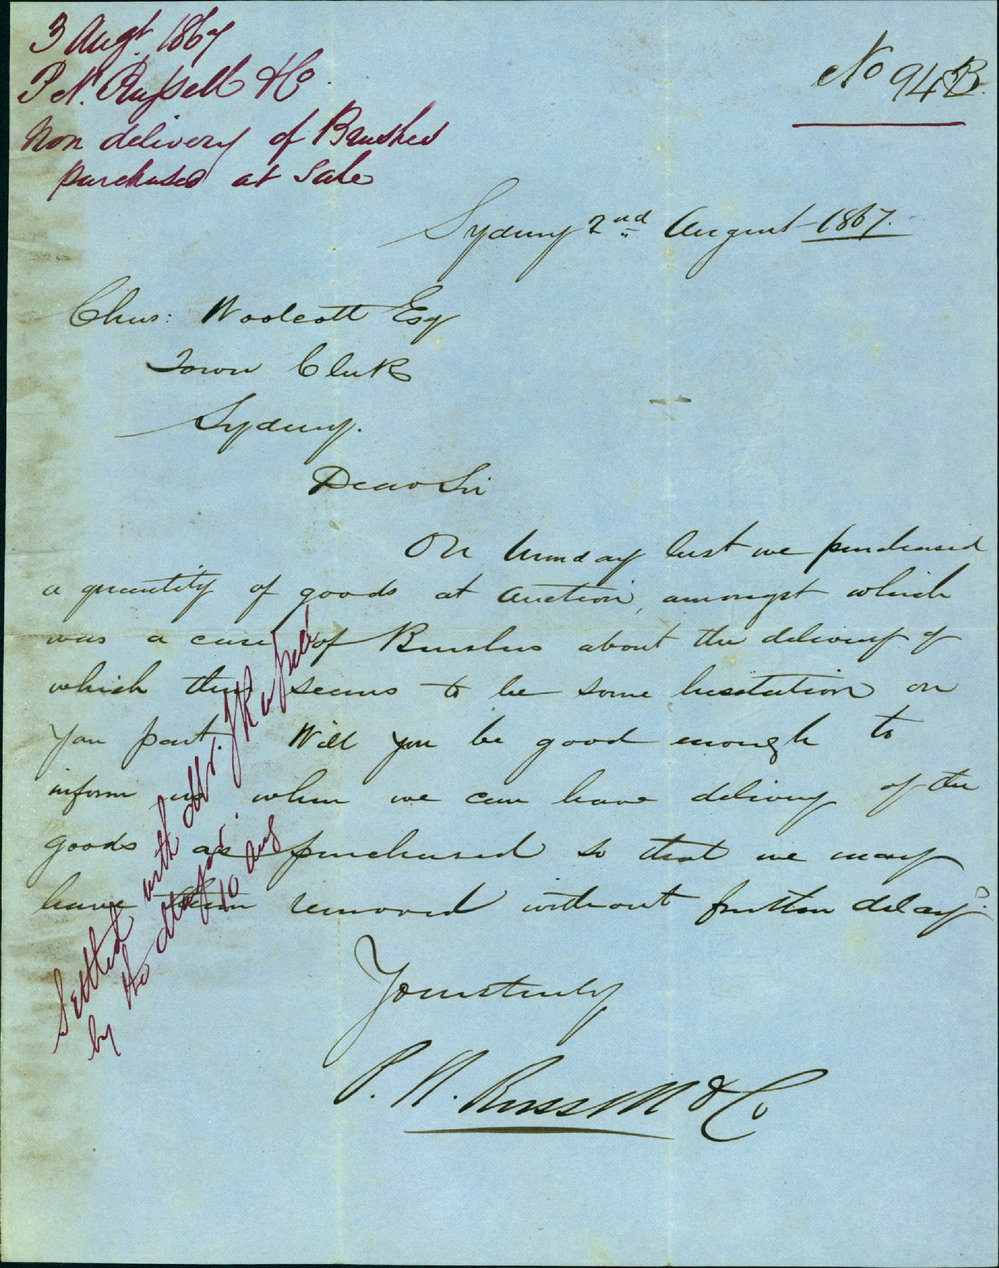 3 Augt. 1867
P. N. Russell & Co.
Non delivery of Brushes
purchased at Sale
No 942B.
Sydney 2nd August 1867.
Chas: Woolcott Esq
Town Clerk
Sydney.
Dear Sir
On Monday last we purchased
a quantity of goods at Auction, amongst which
was a case of Brushes about the delivery of
which there seems to be some hesitation on
your part. Will you be good enough to
inform us when we can have delivery of the
goods as purchased so that we may
have them removed without further delay.
Yours truly
P. N. Russell & Co
Settled with Mr. J R Russell
by the Mayor.
10 Aug